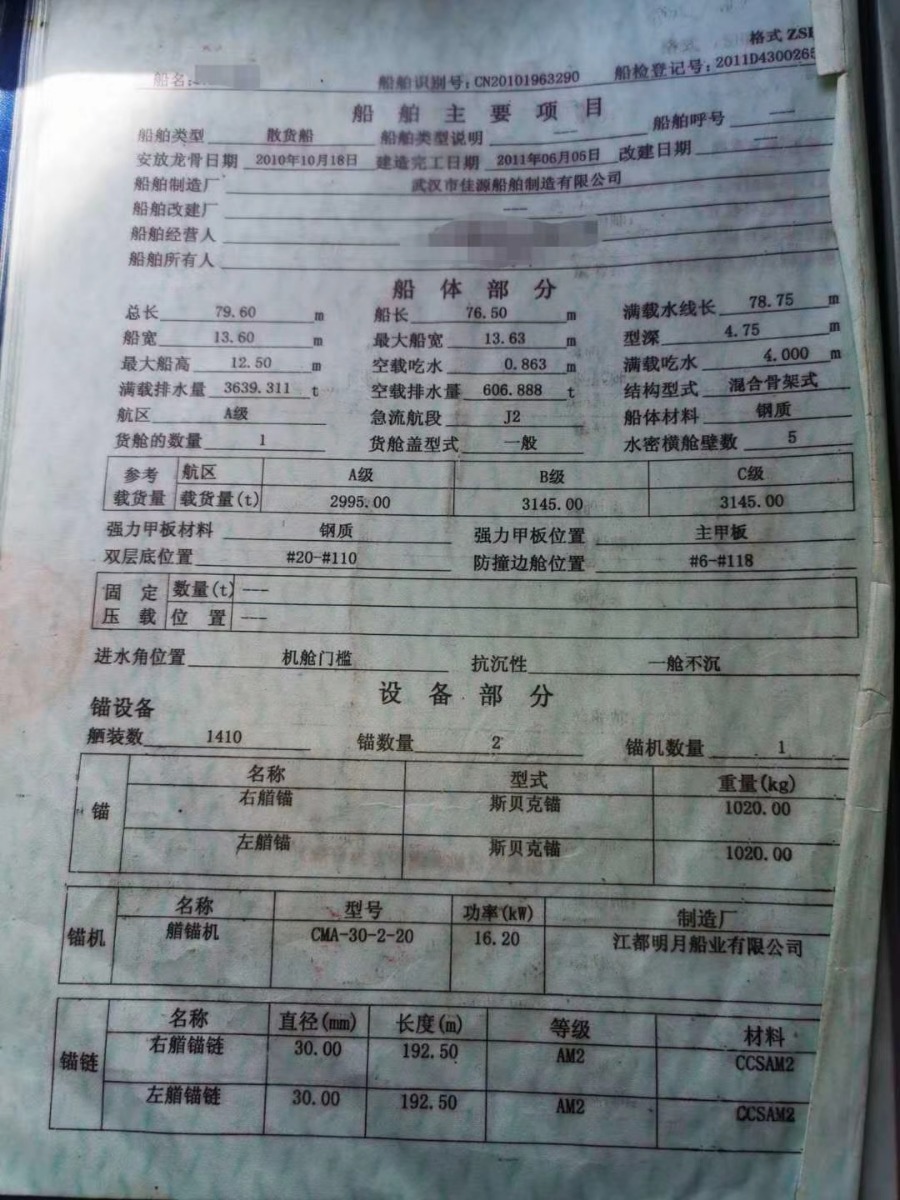 格式 ZSI
船名: 船舶识别号:CN20101963290 船检登记号:2011D4300265
船舶主要项目
船舶类型 散货船 船舶类型说明 --- 船舶呼号 ---
安放龙骨日期 2010年10月18日 建造完工日期 2011年06月05日 改建日期 ---
船舶制造厂 武汉市佳源船舶制造有限公司
船舶改建厂 ---
船舶经营人
船舶所有人
船体部分
总长 79.60 m 船长 76.50 m 满载水线长 78.75 m
船宽 13.60 m 最大船宽 13.63 m 型深 4.75 m
最大船高 12.50 m 空载吃水 0.863 m 满载吃水 4.000 m
满载排水量 3639.311 t 空载排水量 606.888 t 结构型式 混合骨架式
航区 A级 急流航段 J2 船体材料 钢质
货舱的数量 1 货舱盖型式 一般 水密横舱壁数 5
参考 航区 A级 B级 C级
载货量 载货量(t) 2995.00 3145.00 3145.00
强力甲板材料 钢质 强力甲板位置 主甲板
双层底位置 #20-#110 防撞边舱位置 #6-#118
固定 数量(t) ---
压载 位置 ---
进水角位置 机舱门槛 抗沉性 一舱不沉
设备部分
锚设备
舾装数 1410 锚数量 2 锚机数量 1
名称 型式 重量(kg)
锚 右艏锚 斯贝克锚 1020.00
左艏锚 斯贝克锚 1020.00
名称 型号 功率(kW) 制造厂
锚机 艏锚机 CMA-30-2-20 16.20 江都明月船业有限公司
名称 直径(mm) 长度(m) 等级 材料
锚链 右艏锚链 30.00 192.50 AM2 CCSAM2
左艏锚链 30.00 192.50 AM2 CCSAM2